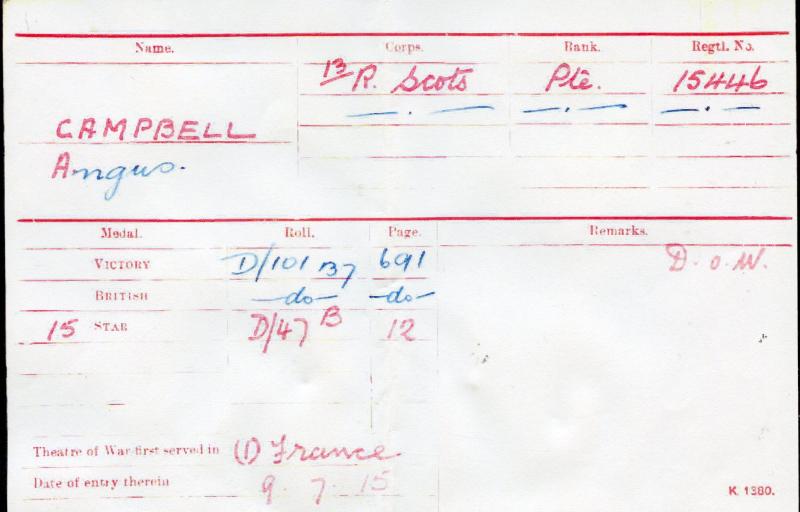 Name. Corps. Rank. Regtl. No.
13 R. Scots Pte. 15446
— . — — . — — . —
CAMPBELL
Angus.
Medal. Roll. Page. Remarks.
VICTORY D/101 B7 691 D. o. W.
BRITISH —do— —do—
15 STAR D/47 B 12
Theatre of War first served in (1) France
Date of entry therein 9. 7. 15
K 1380.